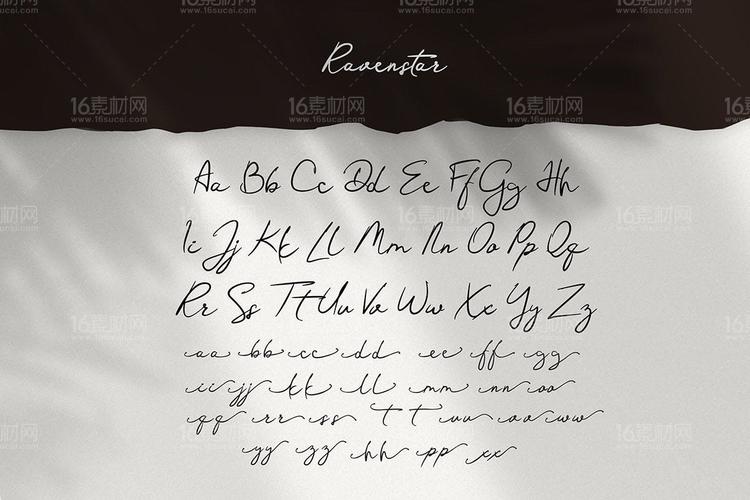 Ravenstar
Aa Bb Cc Dd Ee Ff Gg Hh
Ii Jj Kk Ll Mm Nn Oo Pp Qq
Rr Ss Tt Uu Vv Ww Xx Yy Zz
aa bb cc dd ee ff gg
ii jj kk ll mm nn oo
qq rr ss tt uu vv ww
yy zz hh pp xx
16素材网
www.16sucai.com